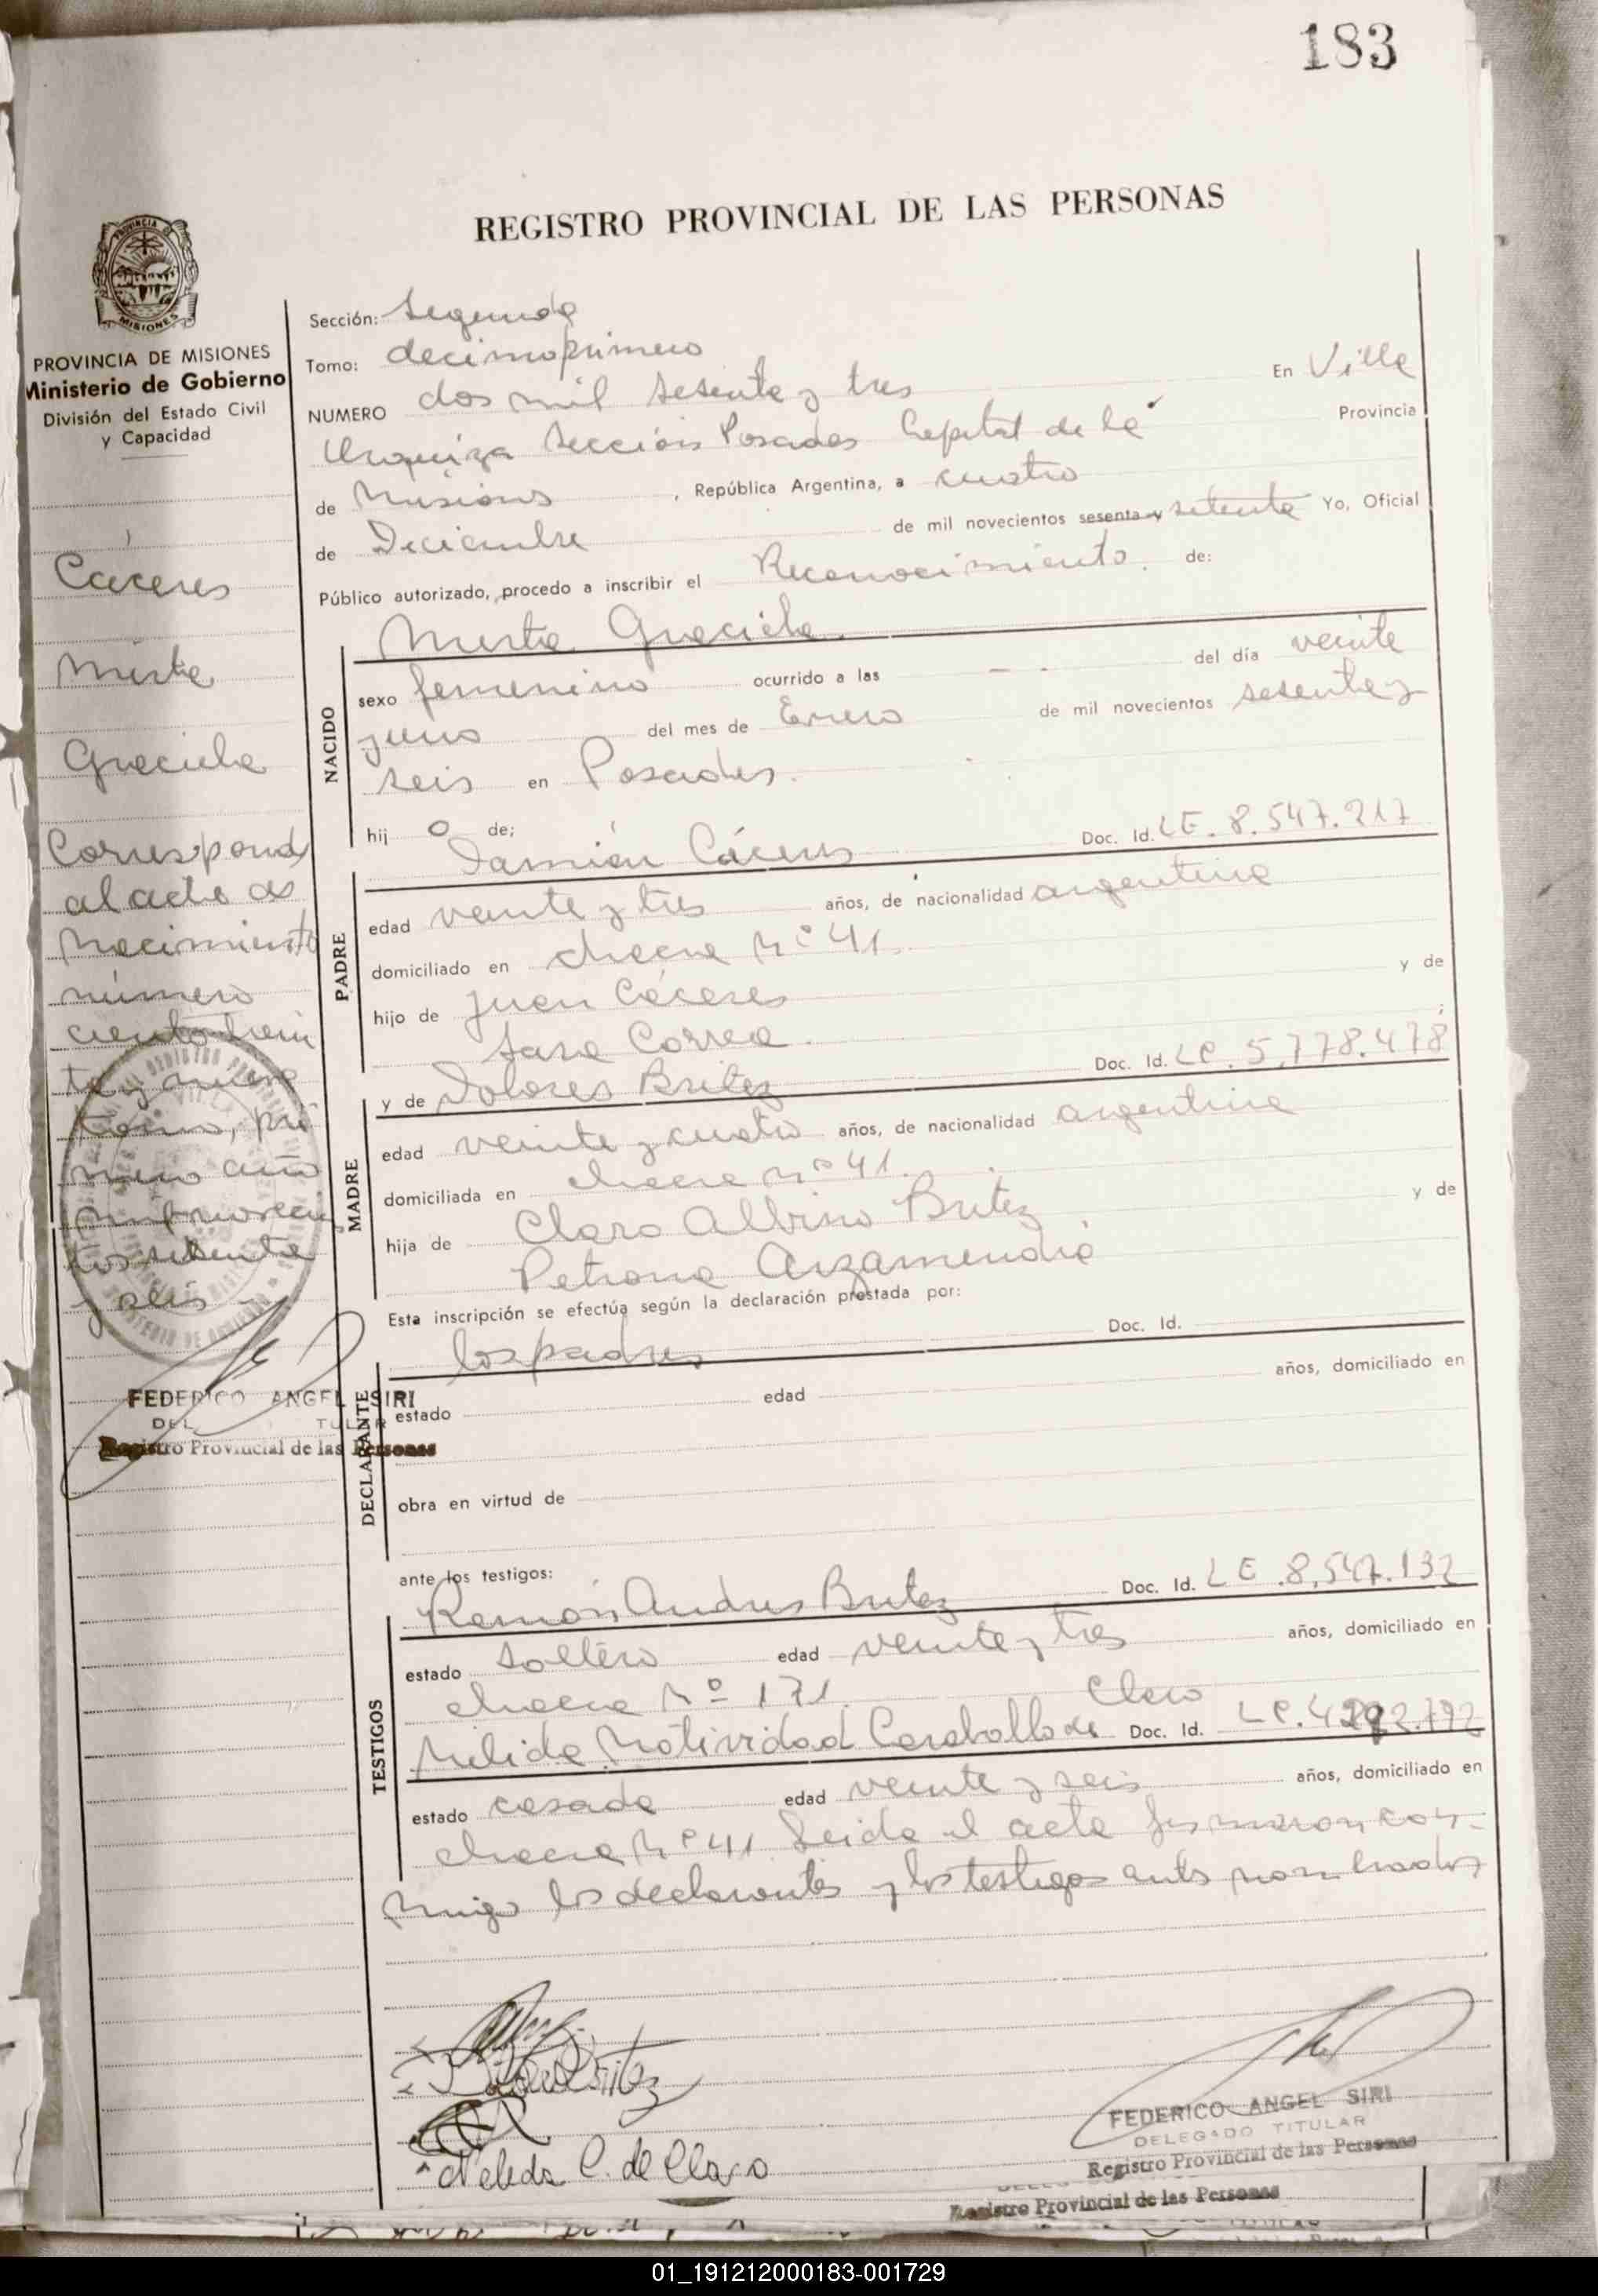 183
REGISTRO PROVINCIAL DE LAS PERSONAS
PROVINCIA DE MISIONES
Ministerio de Gobierno
División del Estado Civil
y Capacidad
Cáceres
Mirta
Graciela
Correspond
al acta de
Nacimiento
número
ciento trein
ta y nueve
tomo, pri
mero año
mil novecien
tos sesenta
y seis
FEDERICO ANGEL SIRI
Registro Provincial de las Personas
Sección: Segunda
Tomo: decimoprimero
NUMERO dos mil sesenta y tres En Villa
Urquiza Sección Posadas Capital de la Provincia
de Misiones, República Argentina, a cuatro
de Diciembre de mil novecientos sesenta y setenta Yo, Oficial
Público autorizado, procedo a inscribir el Reconocimiento. de:
Mirta Graciela
NACIDO
sexo femenino ocurrido a las - - del día veinte
y uno del mes de Enero de mil novecientos sesenta y
seis en Posadas.
hij a de;
Damián Cáceres Doc. Id. LE. 8.547.217
PADRE
edad veinte y tres años, de nacionalidad argentina
domiciliado en chacra Nº 41.
hijo de Juan Cáceres y de
Sara Correa. ;
y de Dolores Britez Doc. Id. LC. 5.778.478
MADRE
edad veinte y cuatro años, de nacionalidad argentina
domiciliada en chacra nº 41.
hija de Claro Albino Britez y de
Petrona Arzamendia
Esta inscripción se efectúa según la declaración prestada por:
los padres Doc. Id.
DECLARANTE
estado edad años, domiciliado en
obra en virtud de
ante los testigos:
Ramón Andres Britez Doc. Id. LE .8.547.132
TESTIGOS
estado soltero edad veinte y tres años, domiciliado en
chacra Nº 171.
Claro
Nelida Natividad Caraballo de Doc. Id. LC.
estado casada edad veinte y seis años, domiciliado en
chacra Nº 41. Leida el acta firmaron con-
migo los declarantes y los testigos antes nombrados
Nelida C. de Claro
FEDERICO ANGEL SIRI
DELEGADO TITULAR
Registro Provincial de las Personas
Registro Provincial de las Personas
01_191212000183-001729